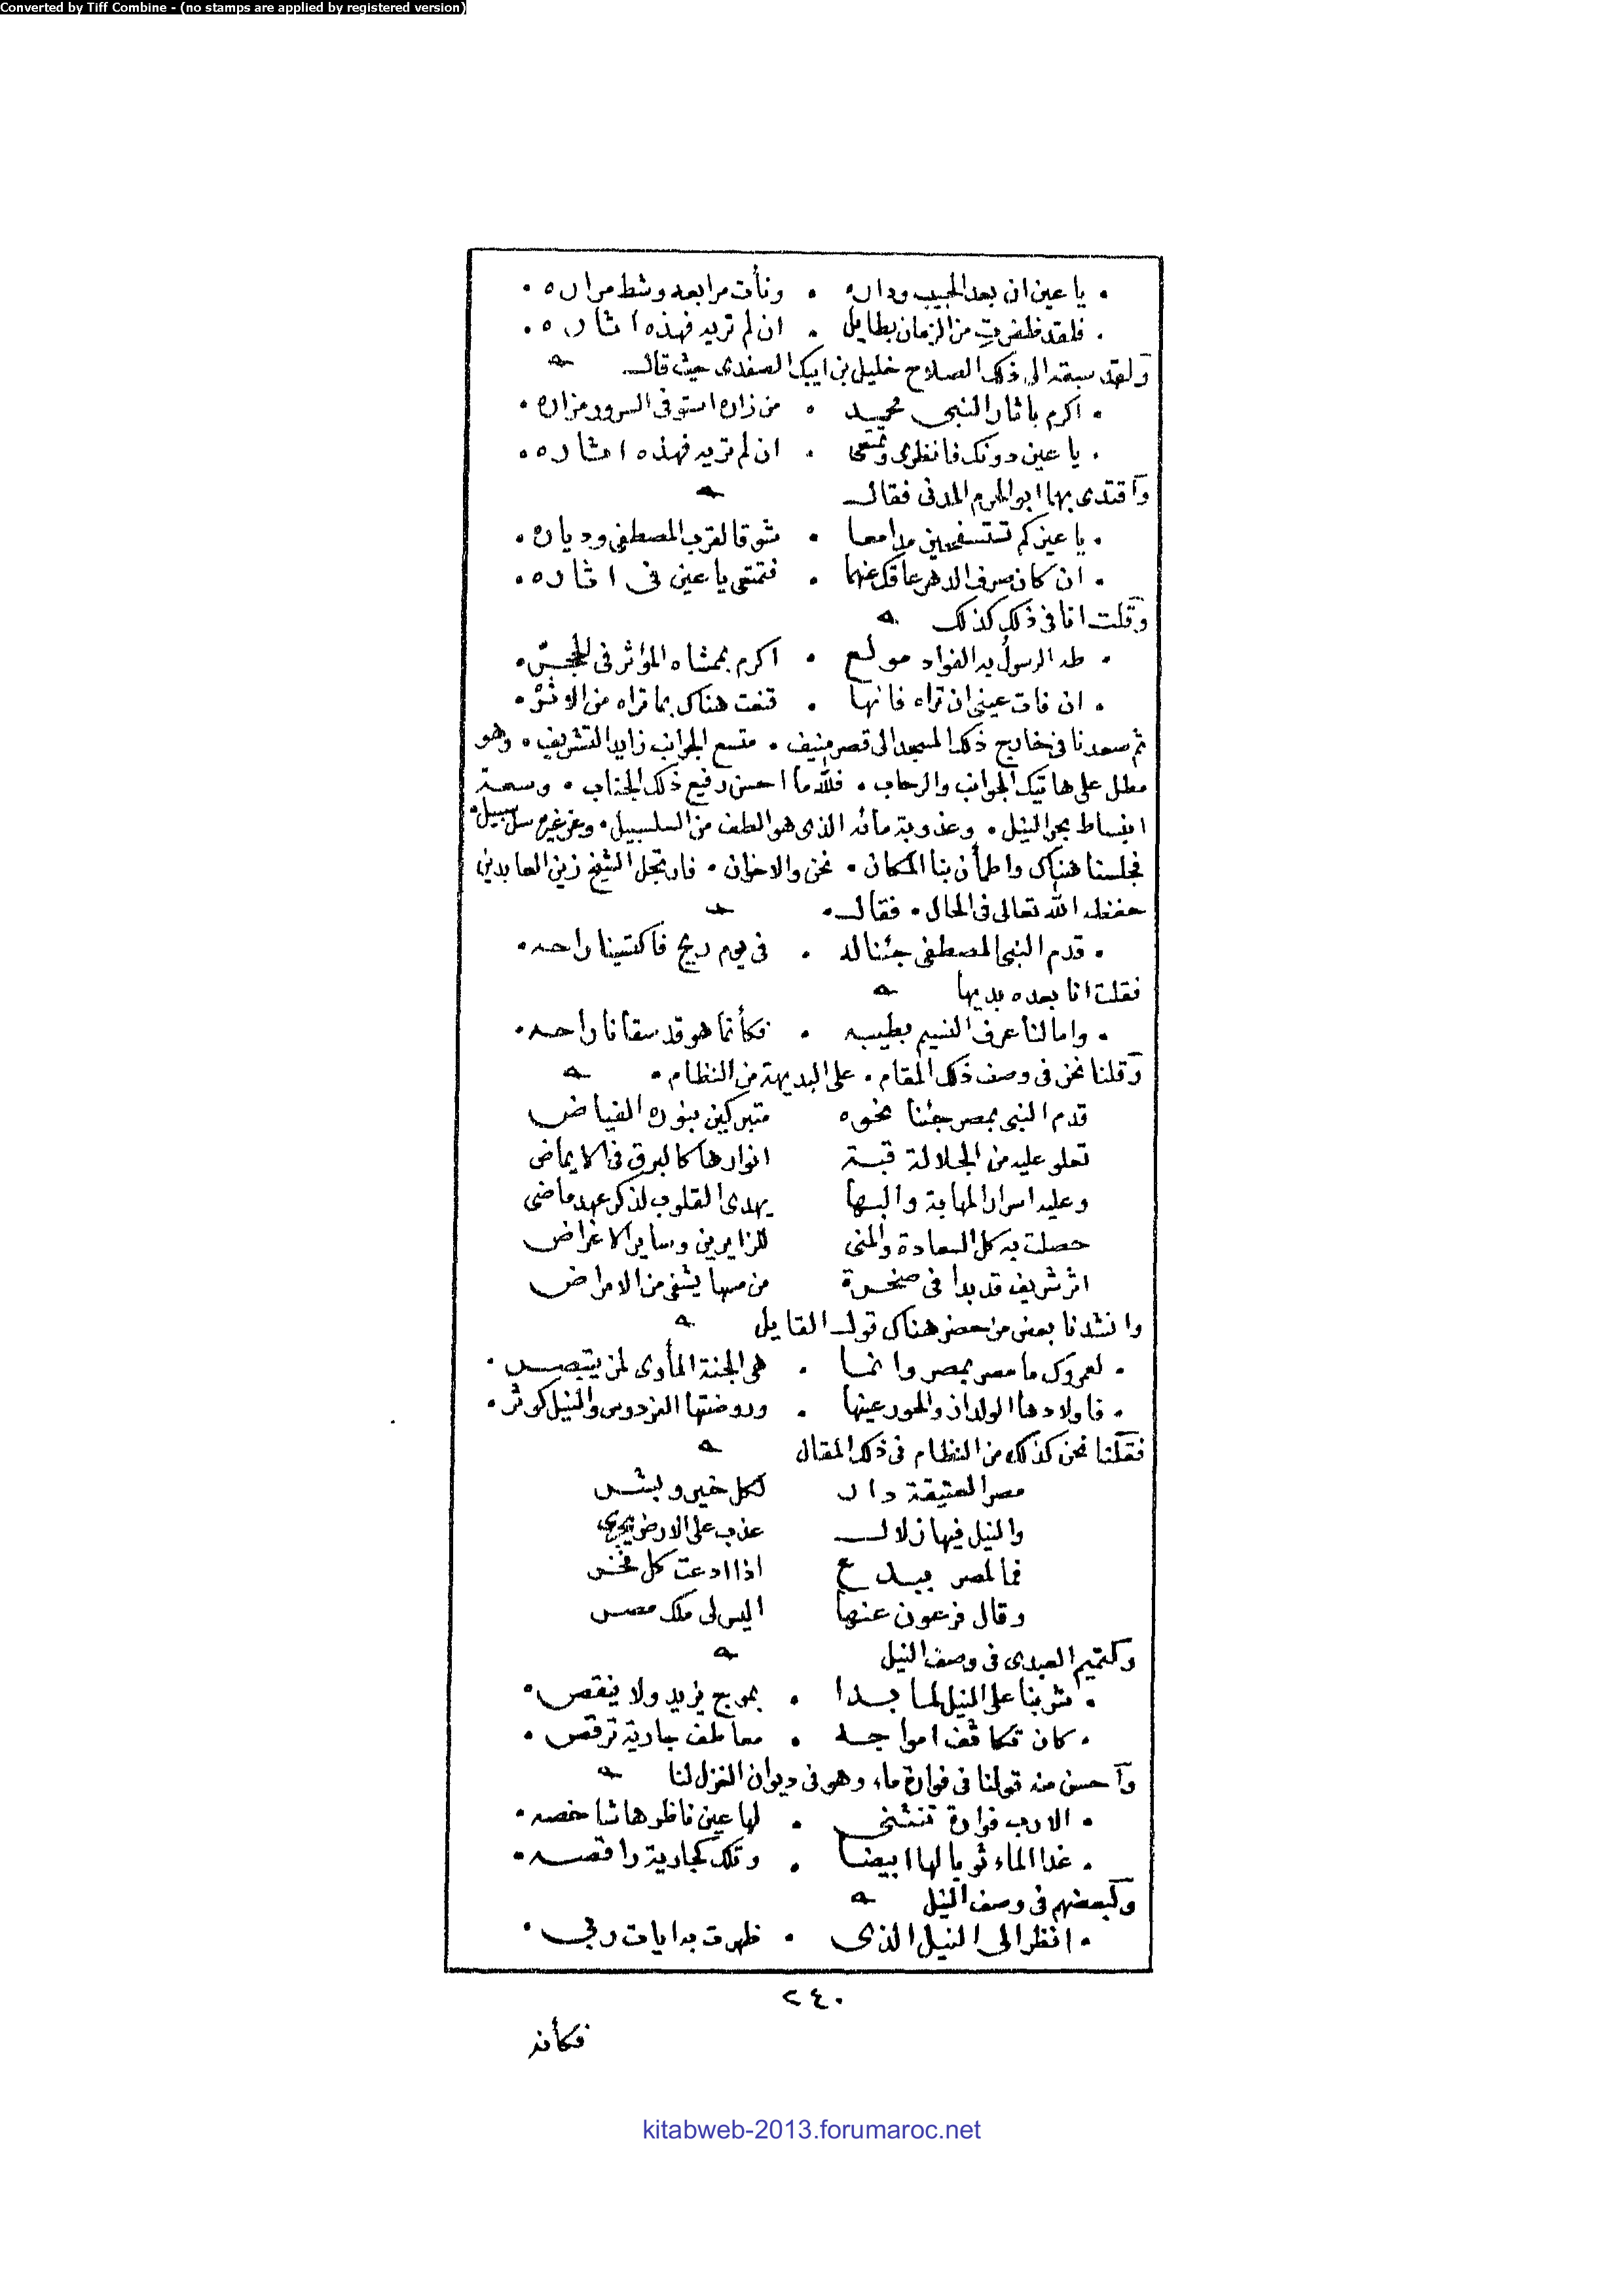 Converted by Tiff Combine - (no stamps are applied by registered version)
• يا عين ان بعد الحبيب وداره • ونأت مرابعه وشط مزاره •
• فلقد ظفرتِ من الزمان بطايل • ان لم تريه فهذه اثاره •
ولقد سبقه الى ذلك الصلاح خليل بن ايبك الصفدى حيث قال
• اكرم باثار النبى محمد • من زاره استوفى السرور مزاره •
• يا عين دونك فانظرى وتمتعى • ان لم تريه فهذه اثاره •
واقتدى بهما ابو الحرم المدنى فقال
• يا عين كم تستسفحين مدامعا • شوقا لقرب المصطفى ودياره •
• ان كان صرف الدهر عاقك عنهما • فتمتعى يا عين فى اثاره •
وقلت انا فى ذلك كذلك
• طه الرسول به الفواد مولع • اكرم بممشاه المؤثر فى الحجر •
• ان فات عينى ان تراه فانها • قنعت هناك بما تراه من الاثر •
ثم صعدنا فى خارج ذلك المسجد الى قصر منيف • متسع الجوانب زايد التشريف • وهو
مطل على هاتيك الجوانب والرحاب • فلله ما احسن رفيع ذلك الجناب • وسعة
انبساط بحر النيل • وعذوبة مائه الذى هو الطف من السلسبيل • وعن غيره سل سبيل •
فجلسنا هناك واطمأن بنا المكان • نحن والاخوان • فارتجل الشيخ زين العابدين
حفظه الله تعالى فى الحال • فقال •
• قدم النبى المصطفى جئنا له • فى يوم ريح فاكتسينا راحه •
فقلت انا بعده بديها
• واما لنا عرف النسيم بطيبه • فكأنما هو قد سقانا راحه •
وقلنا نحن فى وصف ذلك المقام • على البديهة من النظام •
قدم النبى بمصر جئنا نحوه متبركين بنوره الفياض
تعلو عليه من الجلالة قبة انوارها كالبرق فى الايماض
وعليه اسرار المهابة والبها يهدى القلوب لذكر عهد ماضى
حصلت به كل السعادة والمنى للزايرين وساير الاغراض
اثر شريف قد بدا فى صخرة من مسها يشفى من الامراض
وانشدنا بعض من حضر هناك قول القايل
• لعمرك ما مصر بمصر وانما • هى الجنة المأوى لمن يتبصر •
• فاولادها الولدان والحور عينها • وروضتها الفردوس والنيل كوثر •
فقلنا نحن كذلك من النظام فى ذلك المقال
مصر العتيقة دار لكل خير وبشر
والنيل فيها زلال عذب على الارض يجرى
فما لمصر ببدع اذا ادعت كل فخر
وقال فرعون عنها اليس لى ملك مصر
وكتميم العبدى فى وصف النيل
• شربنا على النيل لما بدا • بموج يزيد ولا ينقص •
• كان تكاثف امواجه • معاطف جارية ترقص •
واحسن منه قولنا فى فوارة ماء وهو فى ديوان الغزل لنا
• الا رب فوارة تنثنى • لها عين ناظرها شاخصه •
• غدا الماء ثوبا لها ابيضا • وتلك كجارية راقصه •
ولبعضهم فى وصف النيل
• انظر الى النيل الذى • ظهرت به ايات ربى •
٢٤٠
فكأنه
kitabweb-2013.forumaroc.net